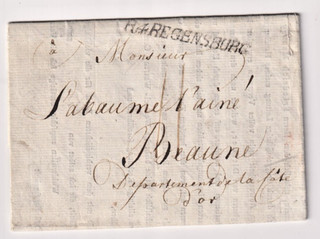 R.4.REGENSBURG
à Monsieur
Labaume l'ainé
Beaune
Departement de la Côte
d'or